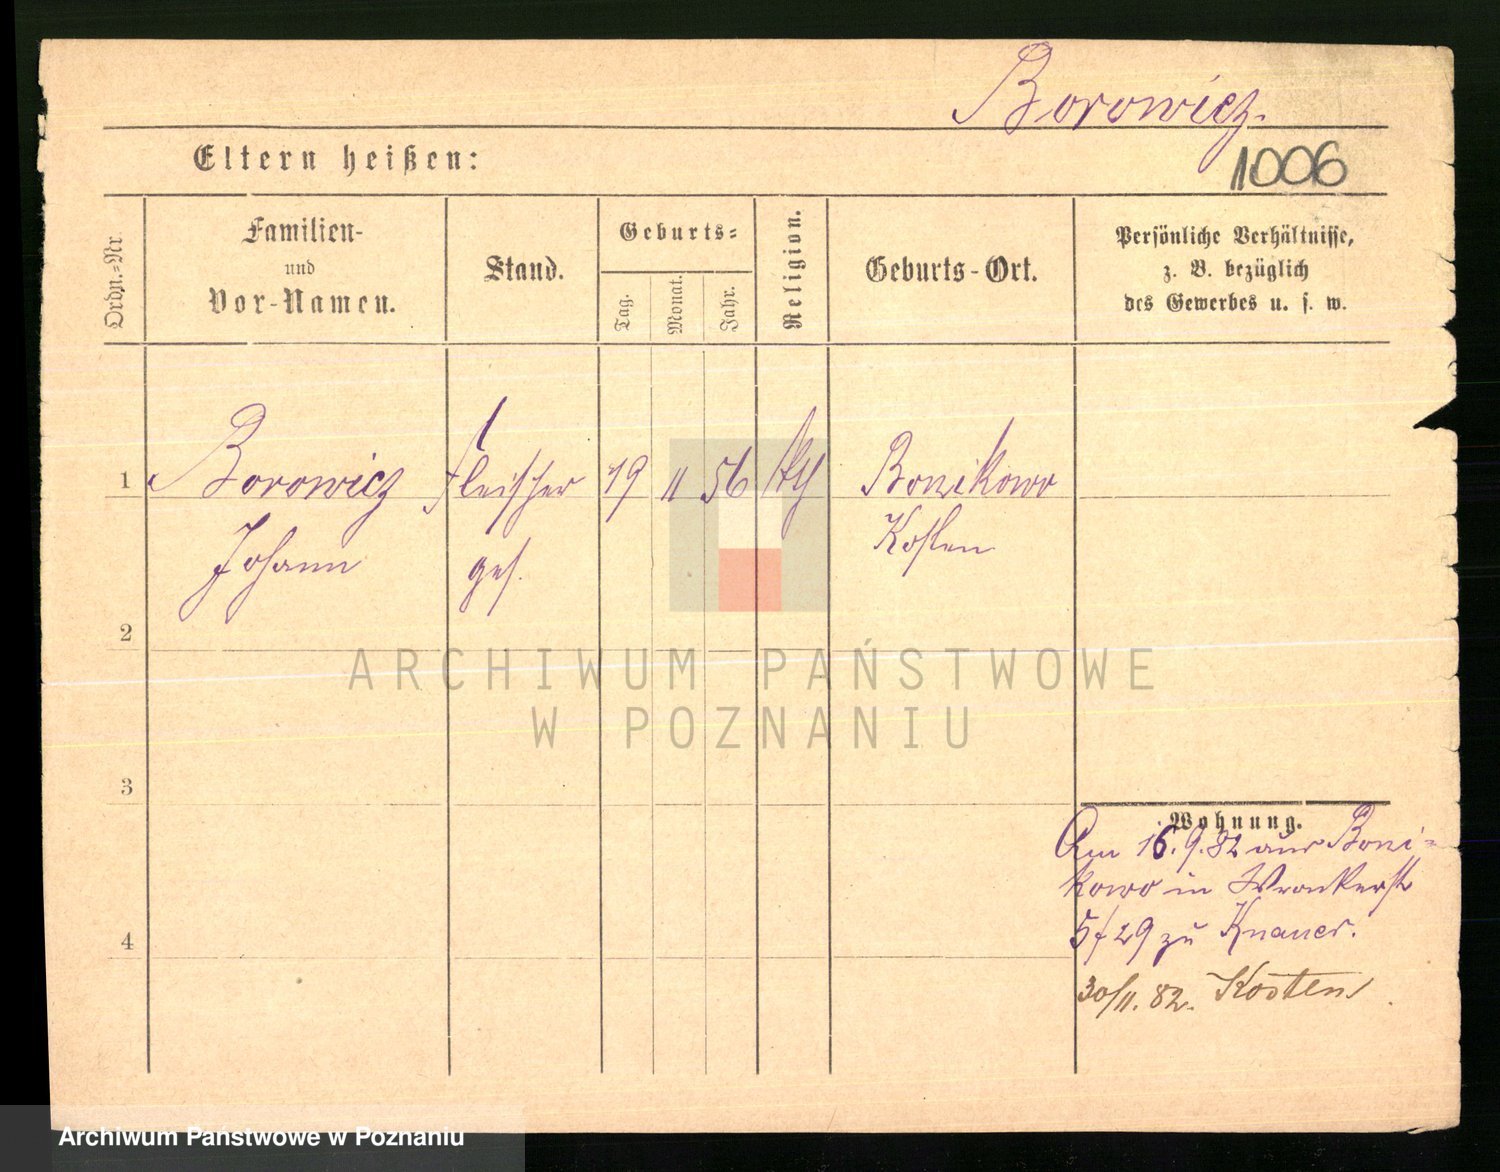 Borowicz.
Eltern heißen:
1006
Ordn.-Nr.
Familien-
und
Vor-Namen.
Stand.
Geburts-
Tag.
Monat.
Jahr.
Religion.
Geburts-Ort.
Persönliche Verhältnisse,
z. B. bezüglich
des Gewerbes u. s. w.
1
Borowicz Fleischer 19 11 56 kth Bonikowo
Johann ges. Kosten
2
3
4
Wohnung.
Am 16.9.82 aus Boni-
kowo in Wronkerstr
5/29 zu Knauer.
30/11. 82. Kosten
ARCHIWUM PAŃSTWOWE
W POZNANIU
Archiwum Państwowe w Poznaniu